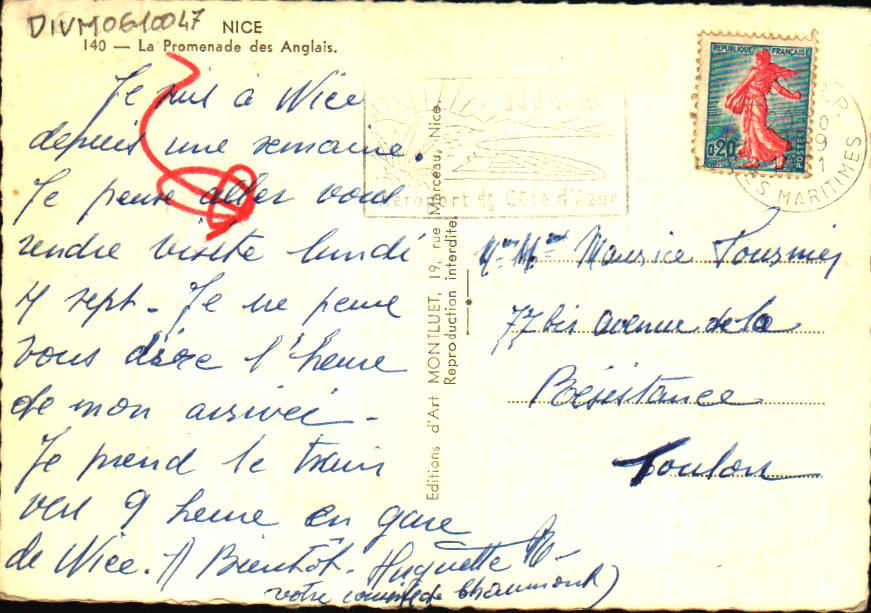 DIVM0610047
NICE
140 — La Promenade des Anglais.
Je suis à Nice
depuis une semaine.
Je pense aller vous
rendre visite lundi
4 sept. Je ne peux
vous dire l'heure
de mon arrivée -
Je prend le train
vers 9 heure en gare
de Nice. A Bientôt. Huguette B-
votre de Chaumont)
Editions d'Art MONTLUET, 19, rue Marceau, Nice.
Reproduction interdite
NICE
Aéroport de Côte d'Azur
REPUBLIQUE FRANÇAISE
0,20
POSTES
ES MARITIMES
Mr Mme Maurice Tournier
77 bis avenue de la
Résistance
Toulon